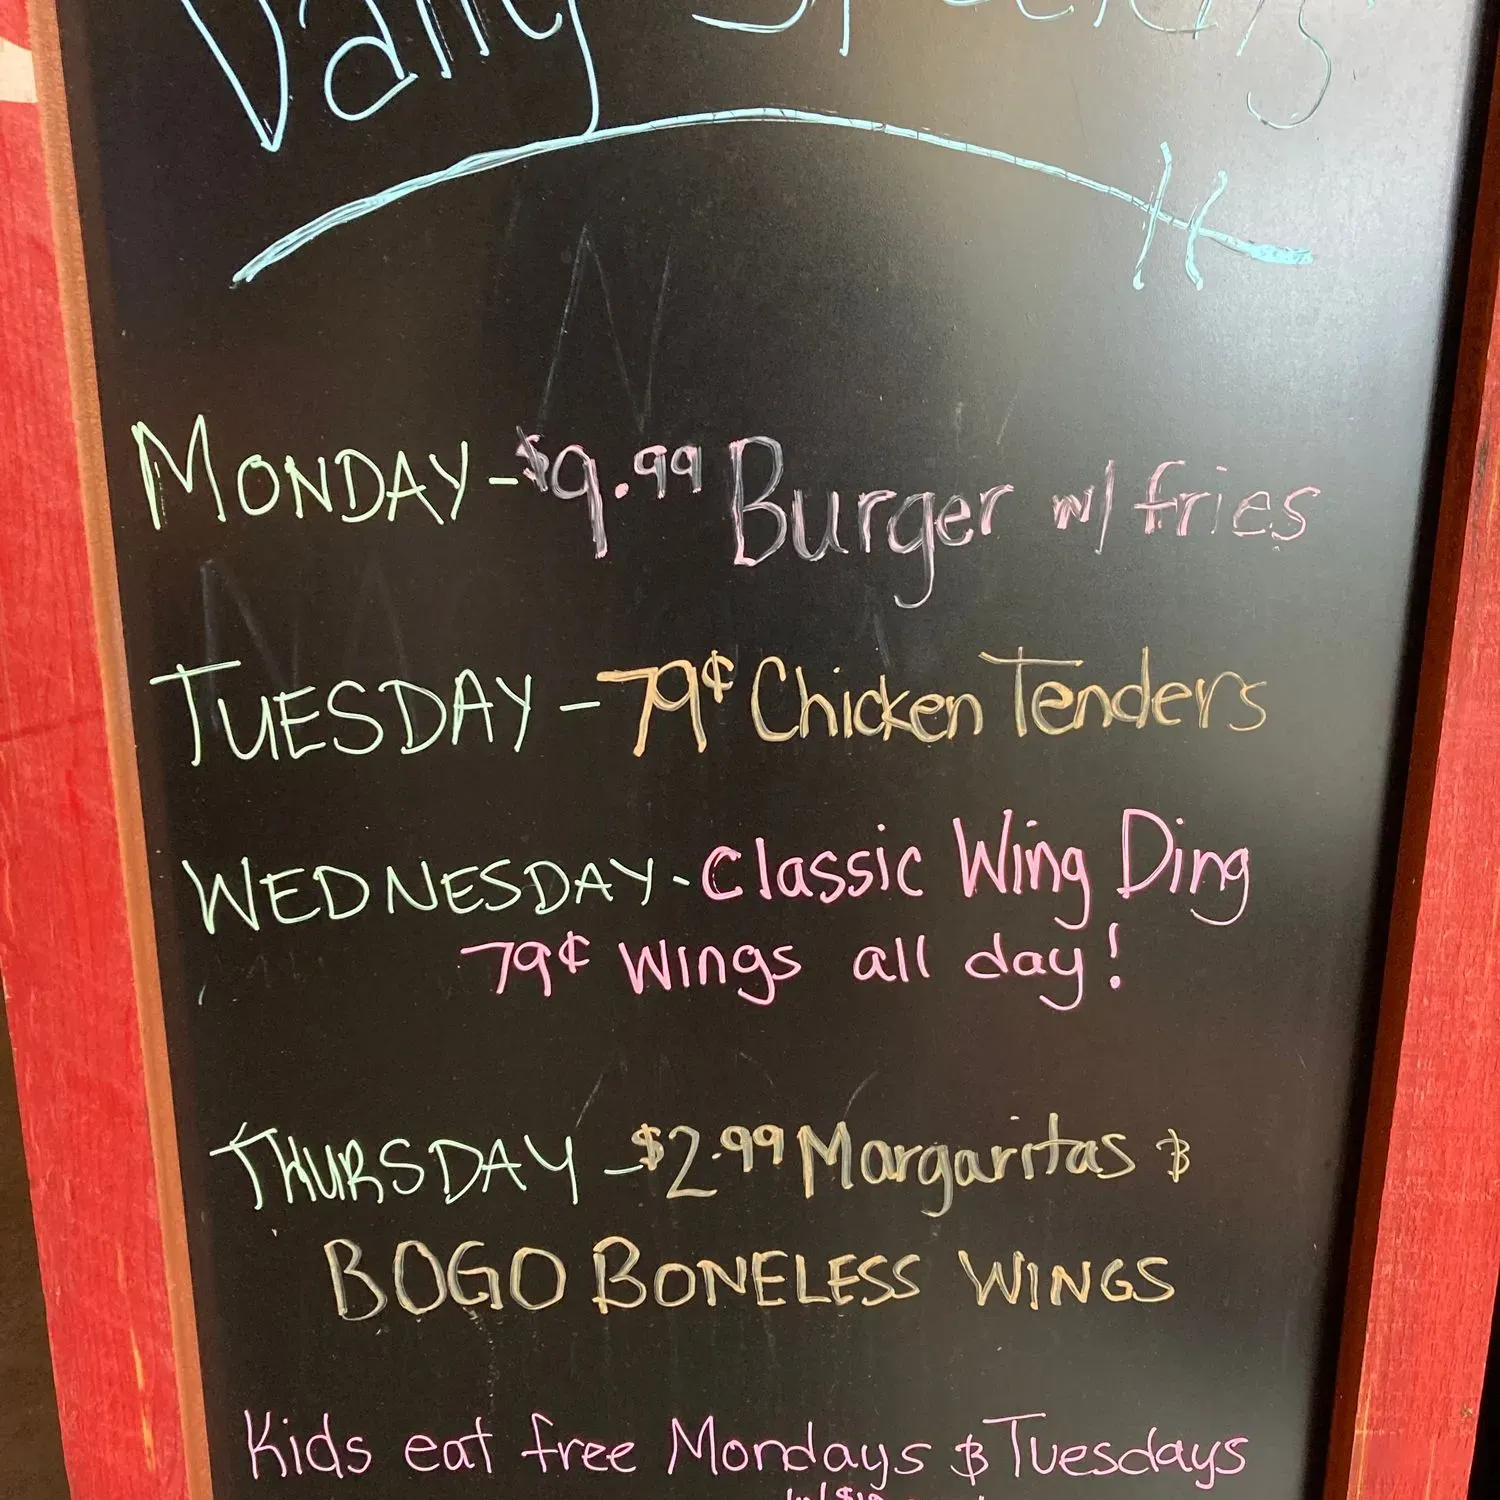 Daily Specials
MONDAY - $9.99 Burger w/ fries
TUESDAY - 79¢ Chicken Tenders
WEDNESDAY - Classic Wing Ding
79¢ Wings all day!
THURSDAY - $2.99 Margaritas &
BOGO BONELESS WINGS
Kids eat free Mondays & Tuesdays